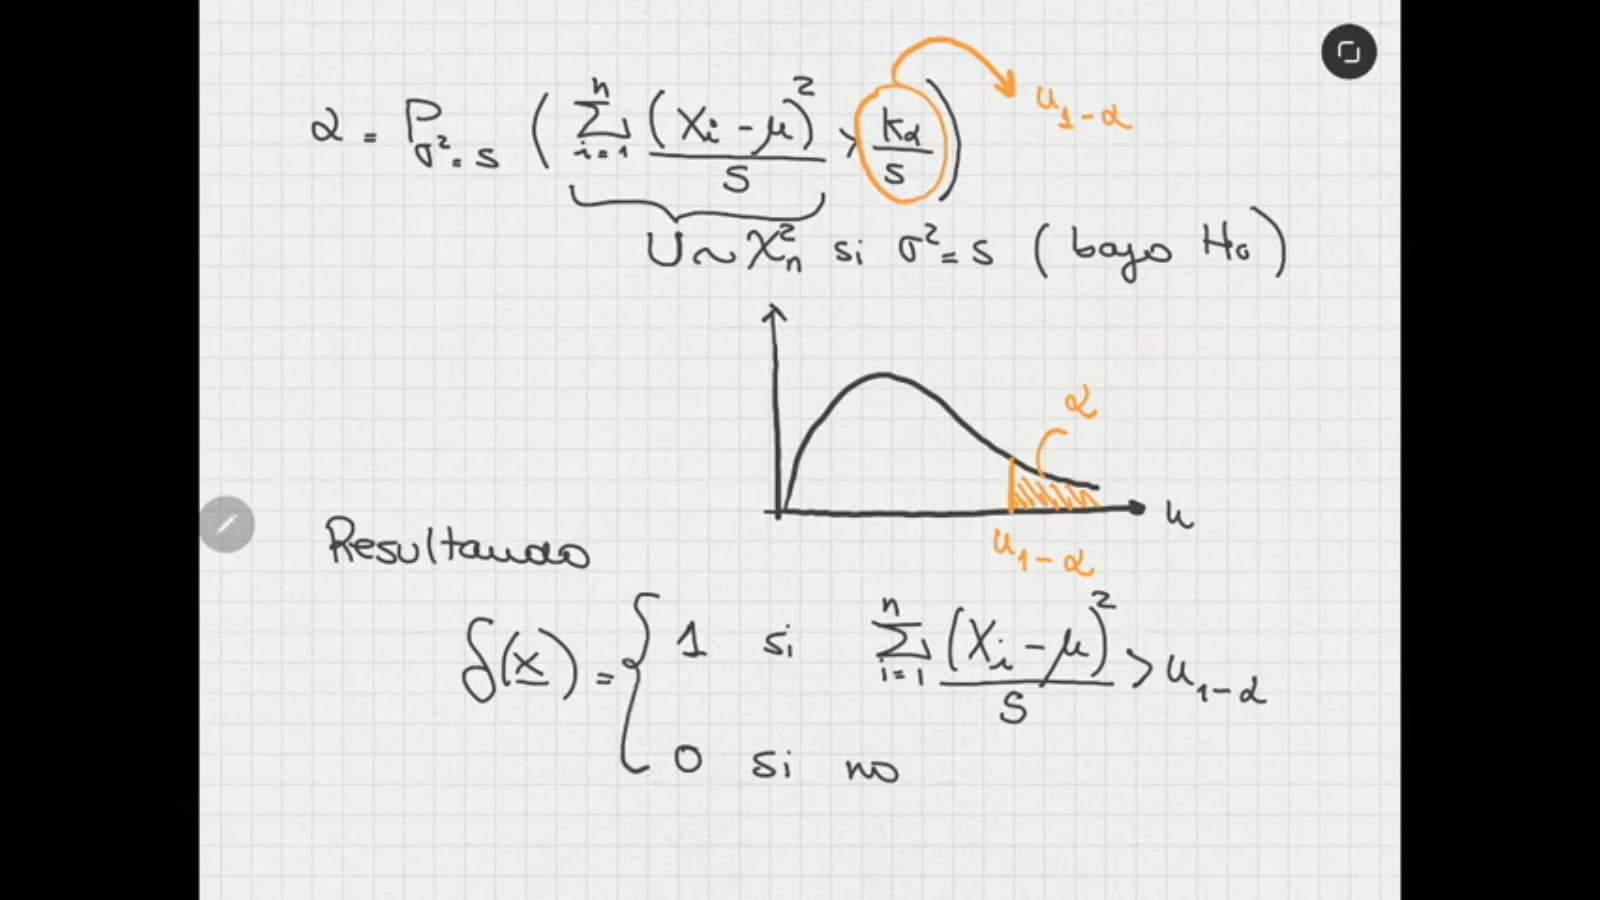 α = P_{σ²=s} ( \sum_{i=1}^{n} \frac{(Xi - μ)²}{s} > \frac{kα}{s} ) u_{1-α}
U ~ χ²_n si σ² = s ( bajo H₀ )
α
u
u_{1-α}
Resultando
δ(x) = { 1 si \sum_{i=1}^{n} \frac{(Xi - μ)²}{s} > u_{1-α}
0 si no